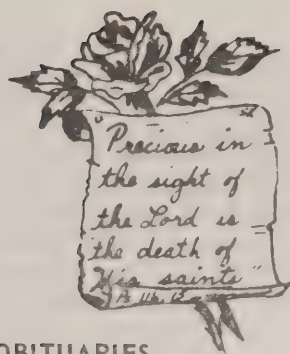 "Precious in
the sight of
the Lord is
the death of
His saints"
OBITUARIES